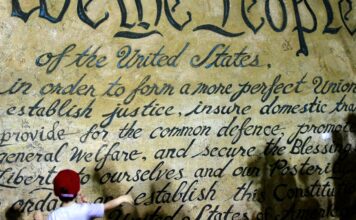 We the People
of the United States,
in order to form a more perfect Union
establish justice, insure domestic tra
provide for the common defence, promo
general Welfare, and secure the Blessing
Libert to ourselves and our Posterit
ordain and establish this Constitu
United States of